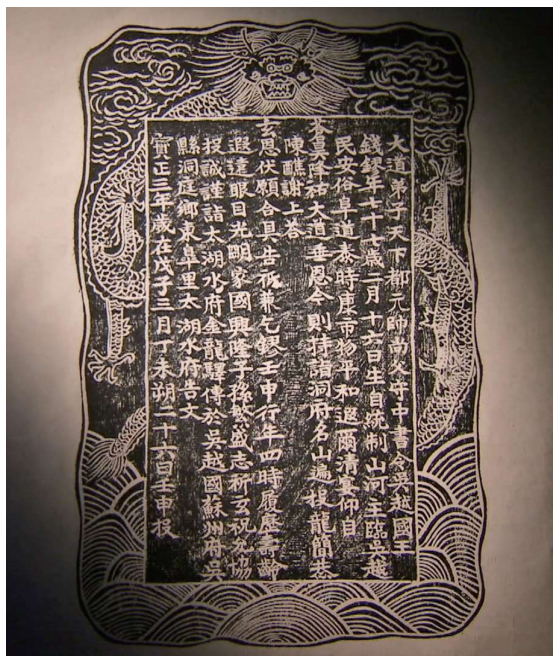 大道弟子天下都元帥尚父守中書令吳越國王
錢鏐年七十七歲二月十六日生自統制山河主臨吳越
民安俗阜道泰時康市物平和遐邇清宴仰自
蒼昊降祐大道垂恩今則特詣洞府名山遍投龍簡恭
陳醮謝上荅
玄恩伏願合具告祈兼乞鏐壬申行年四時履歷壽齡
遐遠眼目光明家國興隆子孫繁盛志祈玄祝允協
投誠謹詣太湖水府金龍驛傳於吳越國蘇州府吳
縣洞庭鄉東皐里太湖水府告文
寶正三年歲在戊子三月丁未朔二十六日壬申投